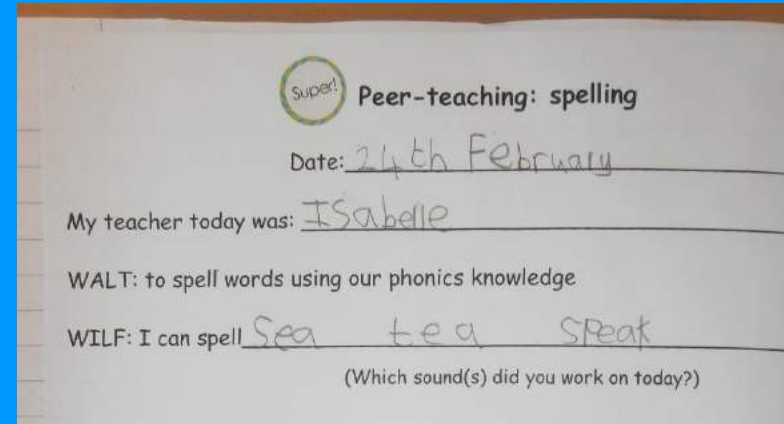 Super! Peer-teaching: spelling
Date: 24th February
My teacher today was: ISabelle
WALT: to spell words using our phonics knowledge
WILF: I can spell Sea tea SPeak
(Which sound(s) did you work on today?)